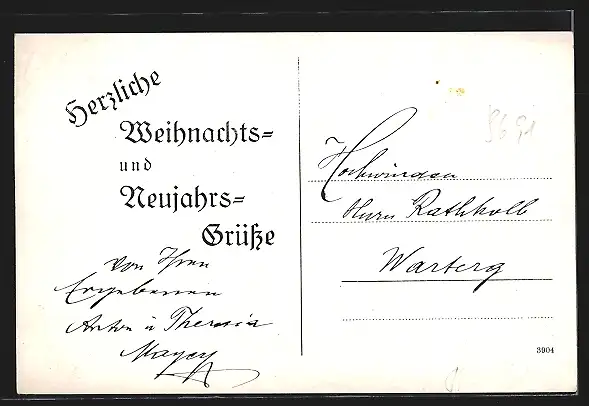 Herzliche
Weihnachts=
und
Neujahrs=
Grüße
von Ihren
Ergebenen
Anton u Theresia
Mayer
Hochwürden
Herrn Rathkolb
Warterg
3904